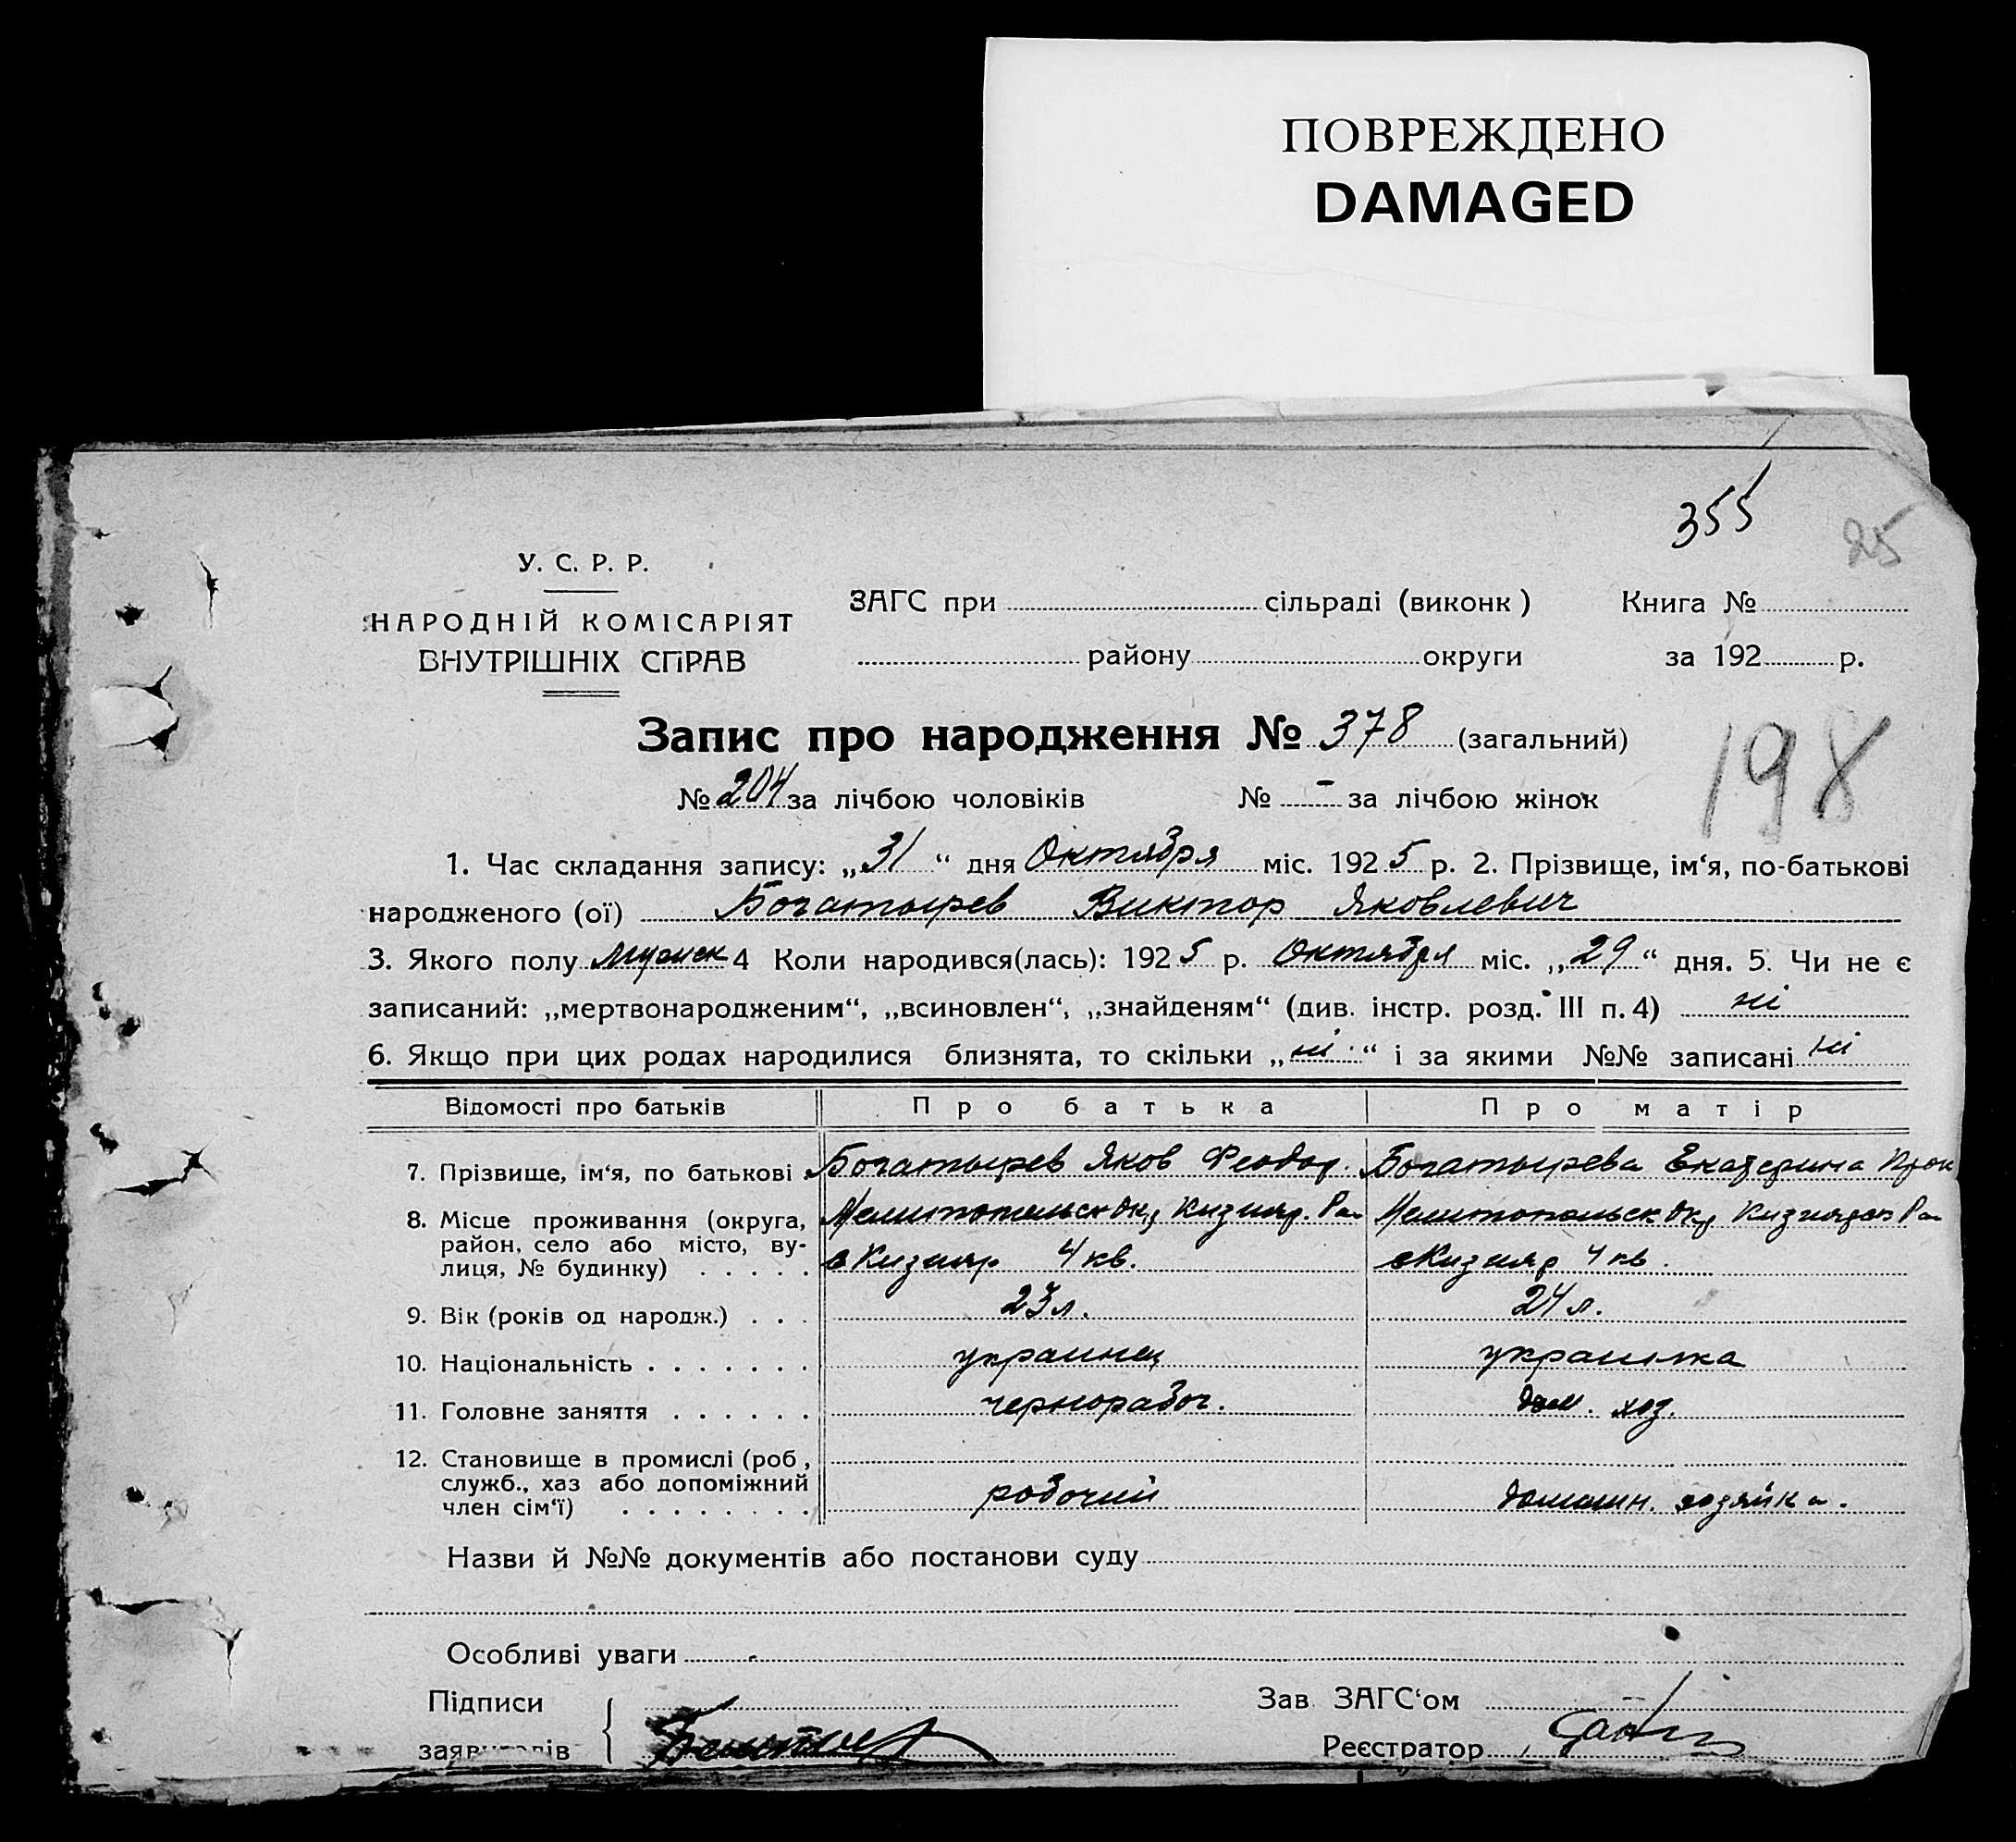 ПОВРЕЖДЕНО
DAMAGED
355
25
У. С. Р. Р.
НАРОДНІЙ КОМІСАРІЯТ
ВНУТРІШНІХ СПРАВ
ЗАГС при сільраді (виконк)
району округи
Книга №
за 192 р.
Запис про народження № 378 (загальний)
198
№ 204 за лічбою чоловіків № - за лічбою жінок
1. Час складання запису: „31“ дня Октября міс. 1925 р. 2. Прізвище, ім‘я, по-батькові
народженого (ої) Богатырев Виктор Яковлевич
3. Якого полу мужск 4 Коли народився(лась): 1925 р. Октября міс. „29“ дня. 5. Чи не є
записаний: „мертвонародженим“, „всиновлен“, „знайденям“ (див. інстр. розд. III п. 4) ні
6. Якщо при цих родах народилися близнята, то скільки „ні“ і за якими №№ записані ні
Відомості про батьків Про батька Про матір
7. Прізвище, ім‘я, по батькові Богатырев Яков Феодор. Богатырева Екатерина Прок
8. Місце проживання (округа, Мелитопольск Окр Кизияр. Ра Мелитопольск Окр Кизиярск Ра
район, село або місто, ву-
лиця, № будинку) . . . . . с Кизияр 4 кв. с Кизияр 4 кв.
9. Вік (років од народж.) . . . 23 л. 24 л.
10. Національність . . . . . . . украинец украинка
11. Головне заняття . . . . . . чернорабоч. дом. хоз.
12. Становище в промислі (роб,
служб., хаз або допоміжний
член сім‘ї) . . . . . . . . рабочий домашн. хозяйка.
Назви й №№ документів або постанови суду
Особливі уваги
Підписи
Зав. ЗАГС‘ом
Реєстратор